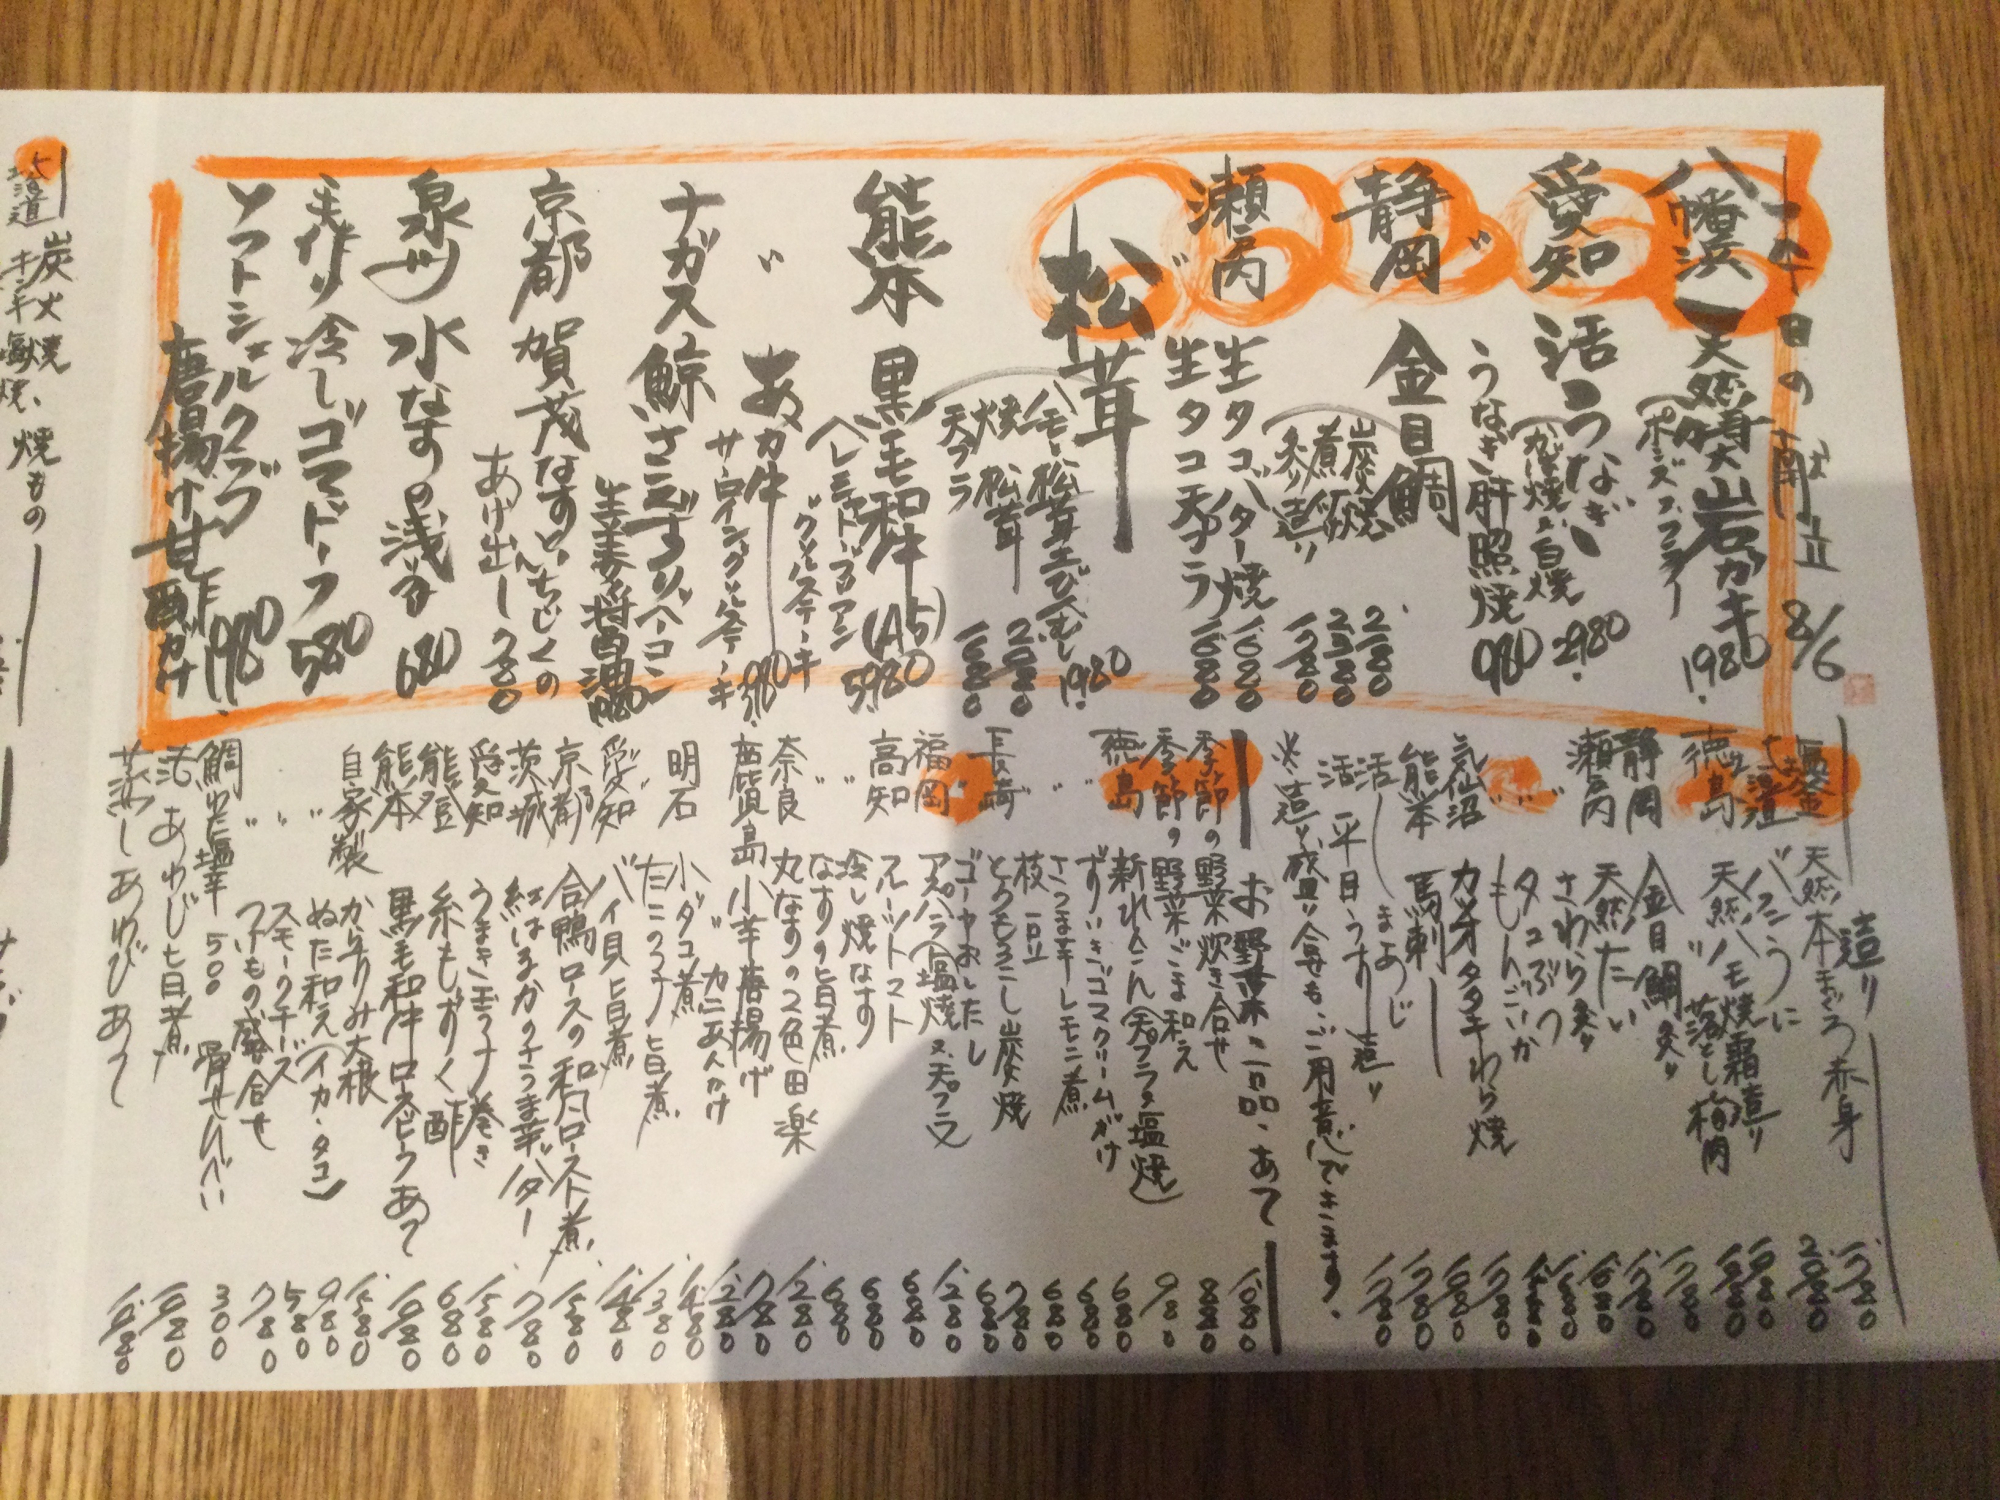 今日の献立 8/6
八幡浜 天然特大岩ガキ 1980
(ポンズ、フライ)
愛知 活うなぎ 2980
(丸焼、白焼
うなぎ肝照焼 980
静岡 金目鯛
炭火焼 2180
煮付 2380
炙り造り 1780
瀬戸内 生タコバター焼 1680
〃 生タコ天プラ 1680
松茸
ハモ、松茸土びんむし 1980
焼松茸 2080
天プラ 1680
熊本 黒毛和牛(A5) 5980
ヘレシャトーブリアン
グリルステーキ
〃 あか牛 3980
サーロイングリルステーキ
ナガス鯨さえずりベーコン
生姜醤油 1980
京都 賀茂なすといちじくの
あげ出し 780
泉州 水なすの浅漬 680
手作り冷しゴマドーフ 580
ソフトシェルクラブ
唐揚げ甘酢がけ 1980
造り
塩釜 天然本まぐろ赤身 1780
北海道 バフンうに 2080
徳島 天然ハモ焼霜造り 1080
〃 落とし梅肉
静岡 金目鯛炙り
瀬戸内 天然たい 1080
〃 さわら炙り
〃 タコぶつ
〃 もんごいか
気仙沼 カツオタタキわら焼
熊本 馬刺
活〆まあじ
活平目うす造り
※造り盛り合せも、ご用意できます。
お野菜、一品、あて
季節の野菜炊き合せ 1080
季節の野菜ごま和え 880
徳島 新れんこん(天プラ又塩焼) 980
〃 ずいきゴマクリームがけ 680
〃 さつま芋レモン煮 680
枝豆 680
長崎 とうもろこし炭焼 780
〃 ゴーヤおしたし 680
福岡 アスパラ(塩焼又天プラ) 1280
高知 フルーツトマト 680
〃 冷し焼なす 680
〃 なすの旨煮 680
奈良 丸なすの2色田楽 1280
鹿児島 小芋唐揚げ 780
〃 カニあんかけ 1280
明石 小ダコ煮 1480
〃 たこの子旨煮 1380
愛知 バイ貝旨煮 1480
京都 合鴨ロースの和ロースト煮 1580
茨城 紅はるかのさつま芋バター 780
愛知 うまき玉子巻き 1580
能登 糸もずく酢 680
熊本 黒毛和牛ローストビーフあて 1080
自家製 からすみ大根 1580
〃 ぬた和え(イカ・タコ) 980
〃 スモークチーズ 580
〃 つけもの盛合せ 780
鯛わた塩辛 500 骨せんべい 300
活あわび旨煮 1080
蒸しあわびあて 1080
炭火焼、焼もの
北海道 キンキ塩焼、